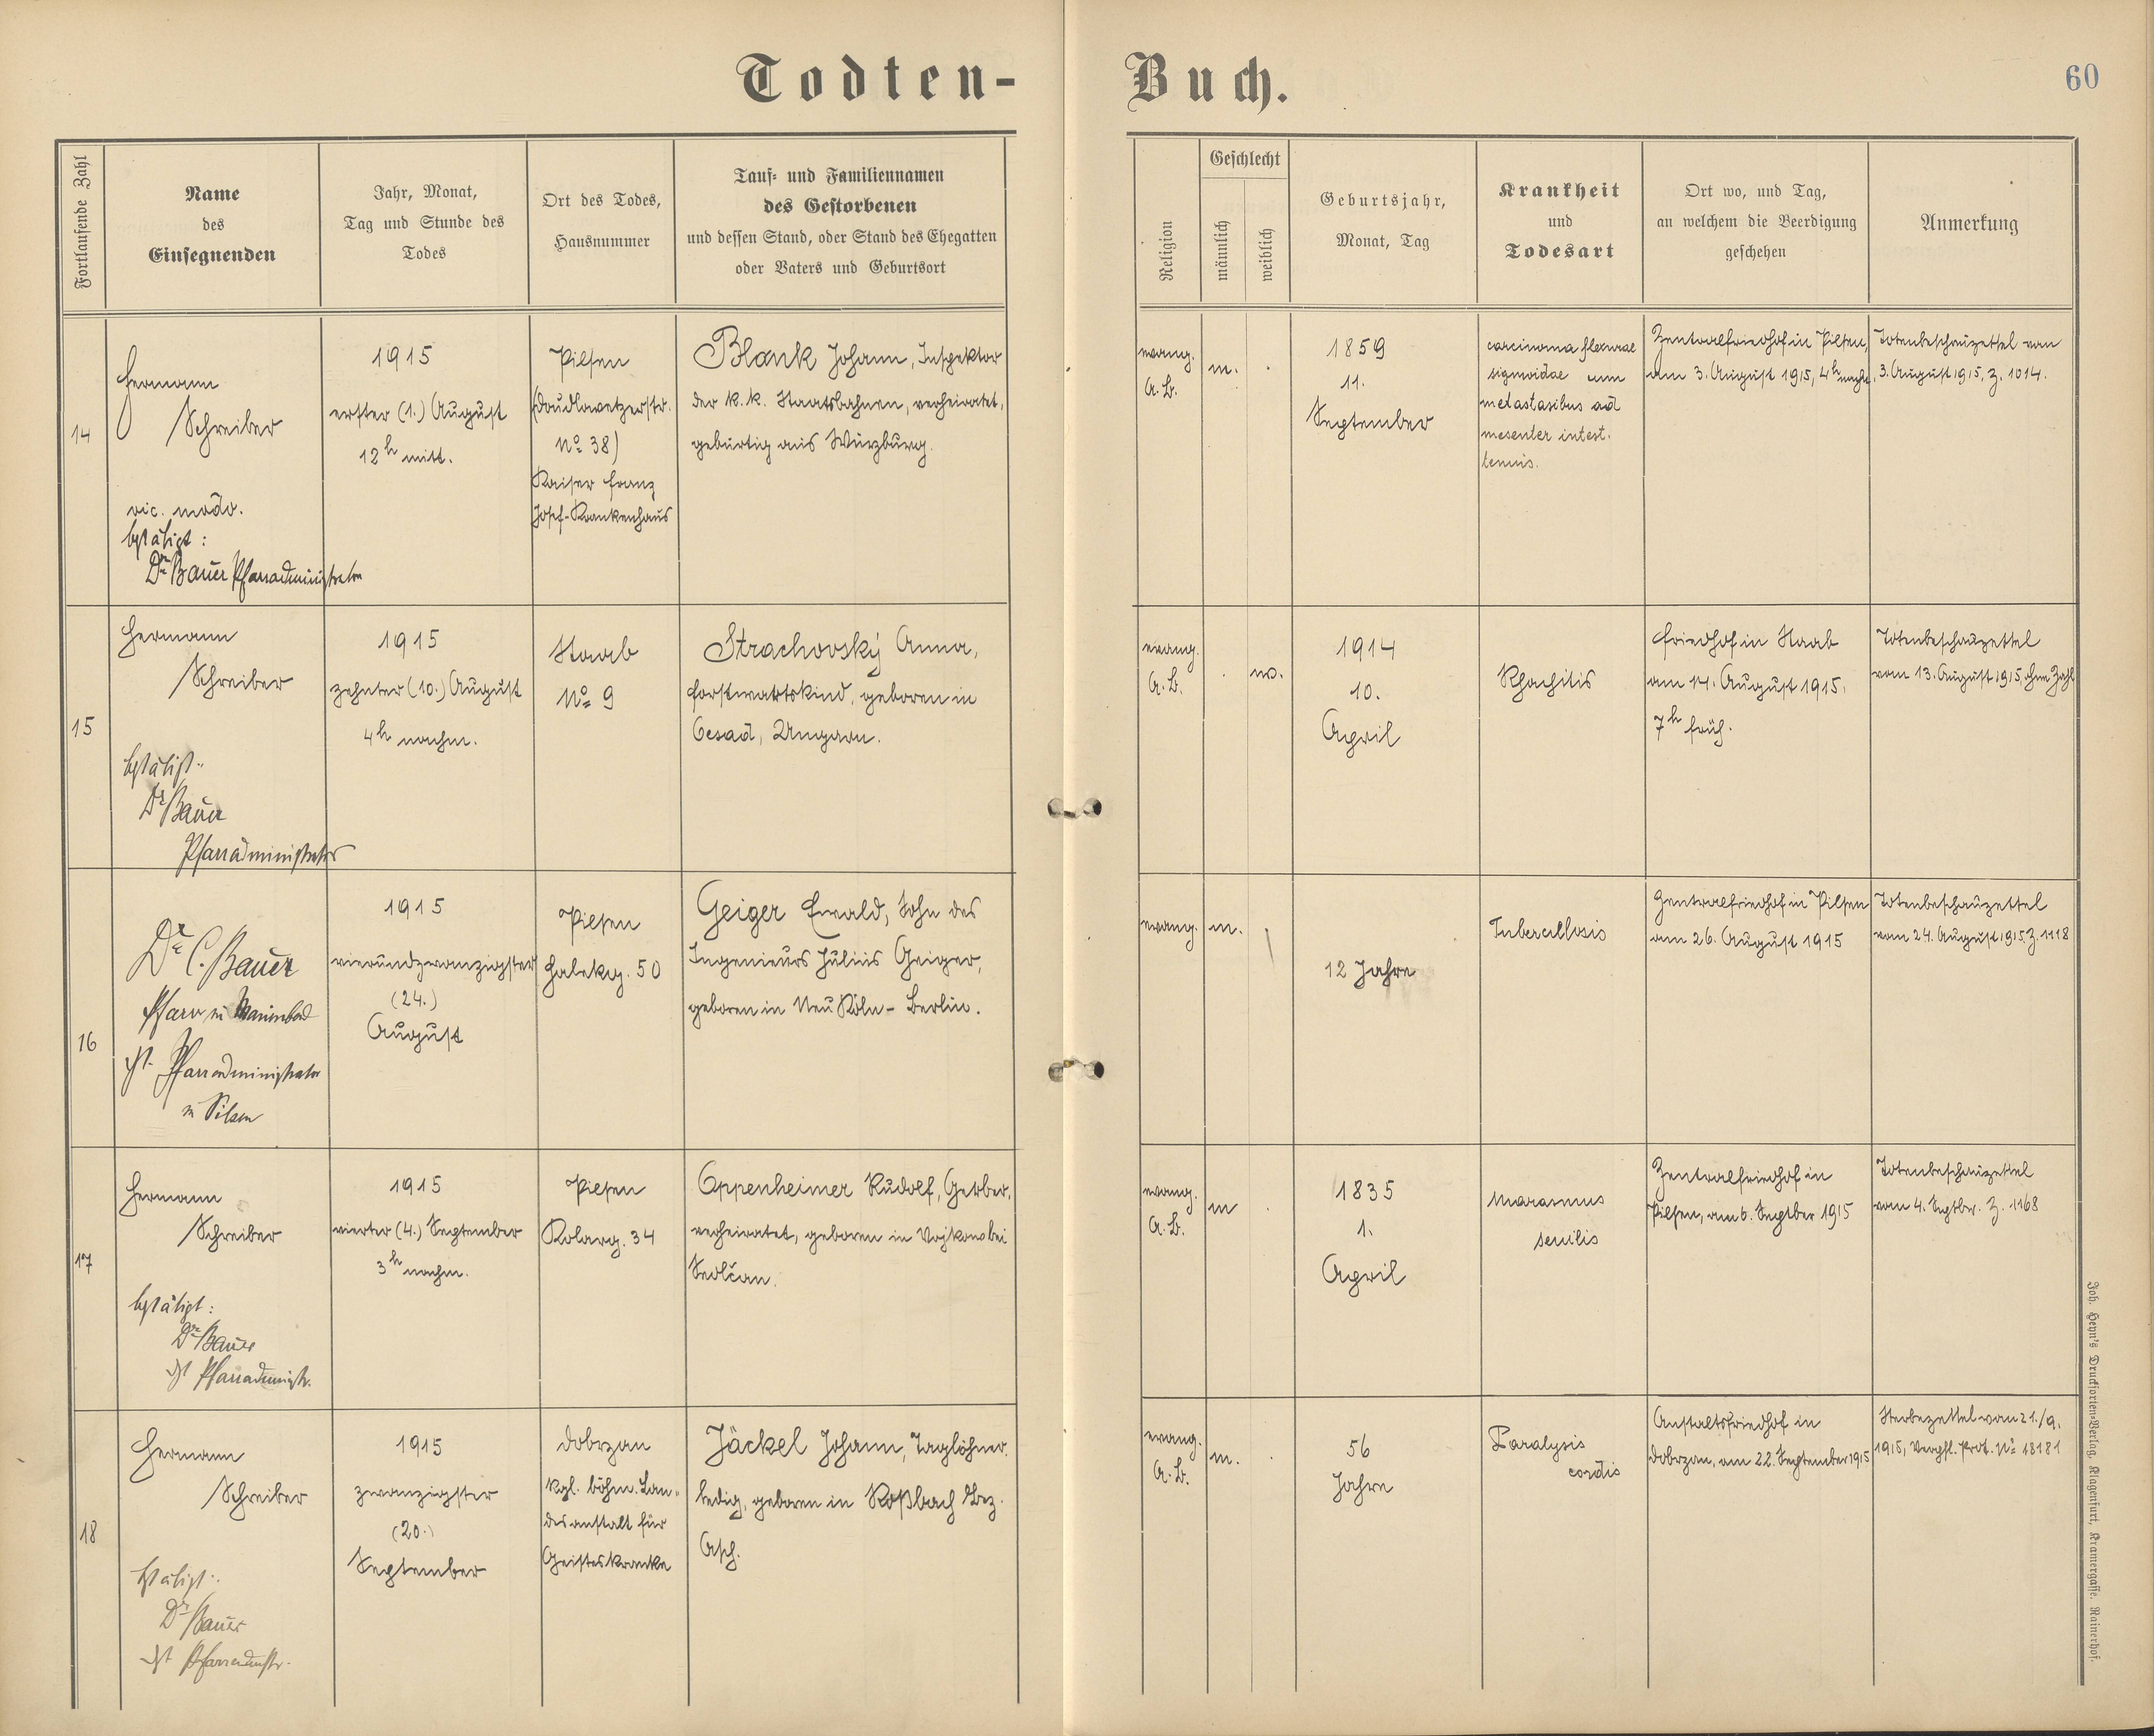 Todten-Buch.
60
Fortlaufende Zahl
Name
des
Einsegnenden
Jahr, Monat,
Tag und Stunde des
Todes
Ort des Todes,
Hausnummer
Tauf- und Familiennamen
des Gestorbenen
und dessen Stand, oder Stand des Ehegatten
oder Vaters und Geburtsort
Religion
Geschlecht
männlich
weiblich
Geburtsjahr,
Monat, Tag
Krankheit
und
Todesart
Ort wo, und Tag,
an welchem die Beerdigung
geschehen
Anmerkung
14
Hermann
Schreiber
vic. modv.
bestätigt:
Dr Bauer Pfarradministrator
1915
erster (1.) August
12 h mitt.
Pilsen
(Doudlawetzerstr.
No 38)
Kaiser Franz
Josef-Krankenhaus
Blank Johann, Inspektor
der k.k. Staatsbahnen, verheiratet,
gebürtig aus Würzburg.
evang.
A.B.
m.
1859
11.
September
carcinoma flexurae
sigmoidae cum
metastasibus ad
mesenter intest.
tenuis.
Zentralfriedhof in Pilsen,
am 3. August 1915, 4h nachm.
Totenbeschauzettel von
3. August 1915, Z. 1014.
15
Hermann
Schreiber
bestätigt:
Dr Bauer
Pfarradministrator
1915
zehnter (10.) August
4h nachm.
Staab
No 9
Strachovský Anna,
Forstwartskind, geboren in
Cesad, Ungarn.
evang.
A.B.
w.
1914
10.
April
Rhachitis
Friedhof in Staab
am 11. August 1915,
7h früh.
Totenbeschauzettel
vom 13. August 1915, ohne Zahl
16
Dr C. Bauer
Pfarrer in Marienbad
dzt. Pfarradministrator
in Pilsen
1915
vierundzwanzigster
(24.)
August
Pilsen
Halekg. 50
Geiger Ewald, Sohn des
Ingenieurs Julius Geiger,
geboren in Neu Köln - Berlin.
evang.
m.
12 Jahre
Tuberculosis
Zentralfriedhof in Pilsen
am 26. August 1915
Totenbeschauzettel
vom 24. August 1915. Z. 1118
17
Hermann
Schreiber
bestätigt:
Dr Bauer
dzt Pfarradministr.
1915
vierter (4.) September
3h nachm.
Pilsen
Kolarg. 34
Oppenheimer Rudolf, Gerber,
verheiratet, geboren in Vojkow bei
Sedlčan.
evang.
A.B.
m
1835
1.
April
marasmus
senilis
Zentralfriedhof in
Pilsen, am 6. Septber 1915
Totenbeschauzettel
vom 4. Septbr. Z. 1168
18
Hermann
Schreiber
bestätigt:
Dr Bauer
dzt Pfarradmstr.
1915
zwanzigster
(20.)
September
Dobrzan
kgl. böhm. Lan-
desanstalt für
Geisteskranke
Jäckel Johann, Taglöhner.
ledig, geboren in Roßbach Bez.
Asch.
evang.
A.B.
m.
56
Jahre
Paralysis
cordis
Anstaltsfriedhof in
Dobrzan, am 22. September 1915
Sterbezettel vom 21./9.
1915, Vergl. Prot. No 18181
Joh. Heyn's Drucksorten-Verlag, Klagenfurt, Kramergasse, Rainerhof.